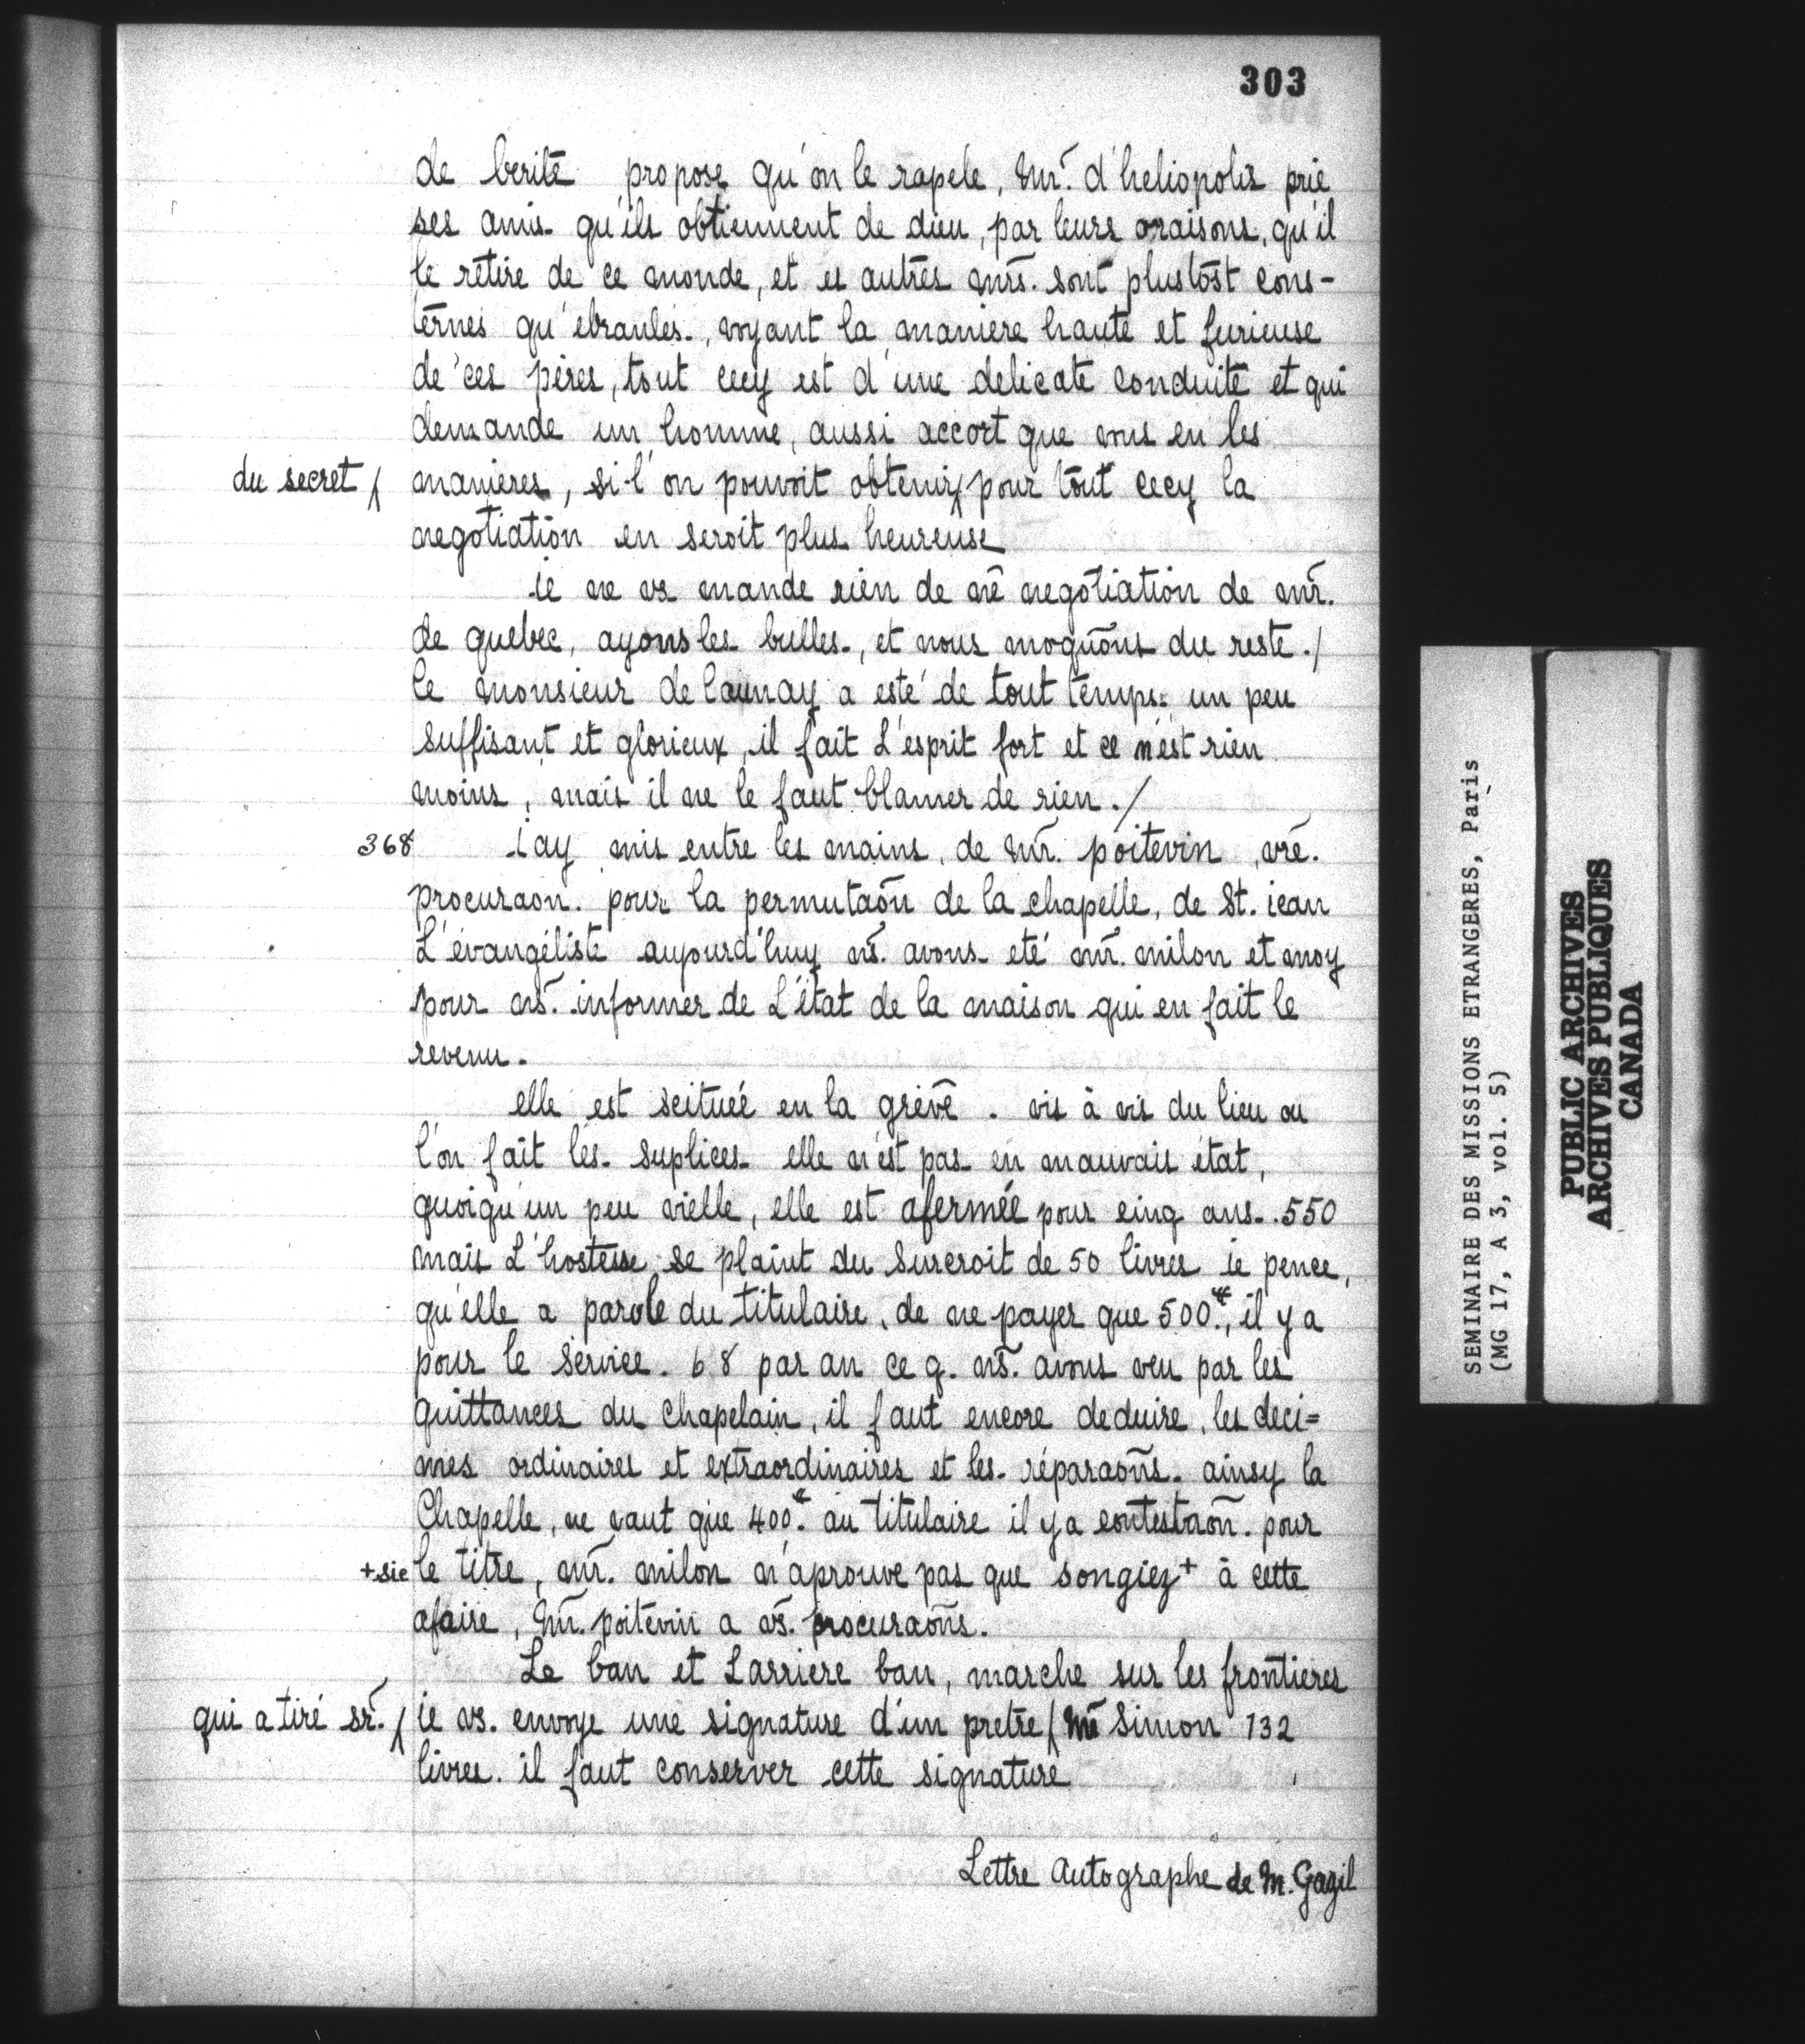 303
de berite propose qu'on le rapele, Mr̄. d'heliopolis prie
ses amis qu'ils obtiennent de dieu, par leurs oraisons, qu'il
le retire de ce monde, et es autres mrs̄. sont plustost cons-
ternés qu'ebranlés., voyant la maniere haute et furieuse
de ces péres, tout cecy est d'une delicate conduite et qui
demande un homme, aussi accort que vous en les
du secret / manieres, si l'on pouvoit obtenir / pour tout cecy la
negotiation en seroit plus heureuse
ie ne vs mande rien de nr̄e negotiation de mr̄.
de quebec, ayons les bulles., et nous moquons du reste./
le monsieur de launay a esté de tout temps: un peu
suffisant et glorieux, il fait L'esprit fort et ce n'est rien
moins, mais il ne le faut blamer de rien./
368 iay mis entre les mains, de Mr̄. poitevin vr̄e.
procuraon. pour la permutaōn de la chapelle, de St. iean
L'évangéliste aujourd'huy ns̄. avons eté mr̄. milon et moy
pour ns̄. informer de L'état de la maison qui en fait le
revenu.
elle est scituéé en la gréve. vis à vis du lieu ou
l'on fait les suplices elle n'est pas en mauvais état,
quoiqu'un peu vielle, elle est afermée pour cinq ans.. 550
mais L'hostesse se plaint du surcroit de 50 livres ie pence,
qu'elle a parole du titulaire, de ne payer que 500.#, il y a
pour le service. 68 par an ce q. ns̄. avons veu par les
quittances du chapelain, il faut encore deduire, les deci=
mes ordinaires et extraordinaires et les réparaōns. ainsy la
Chapelle, ne vaut que 400.# au titulaire il y a contestaōn. pour
+sic le titre, mr̄. milon n'aprouve pas que songiez+ à cette
afaire, Mr̄. poitevin a vs̄. procuraōns.
Le ban et Larriere ban, marche sur les frontieres
qui a tiré sr̄. / ie vs. envoye une signature d'un pretre / Mē Simon 132
livres. il faut conserver cette signature
Lettre Autographe de M. Gazil
SEMINAIRE DES MISSIONS ETRANGERES, Paris
(MG 17, A 3, vol. 5)
PUBLIC ARCHIVES
ARCHIVES PUBLIQUES
CANADA